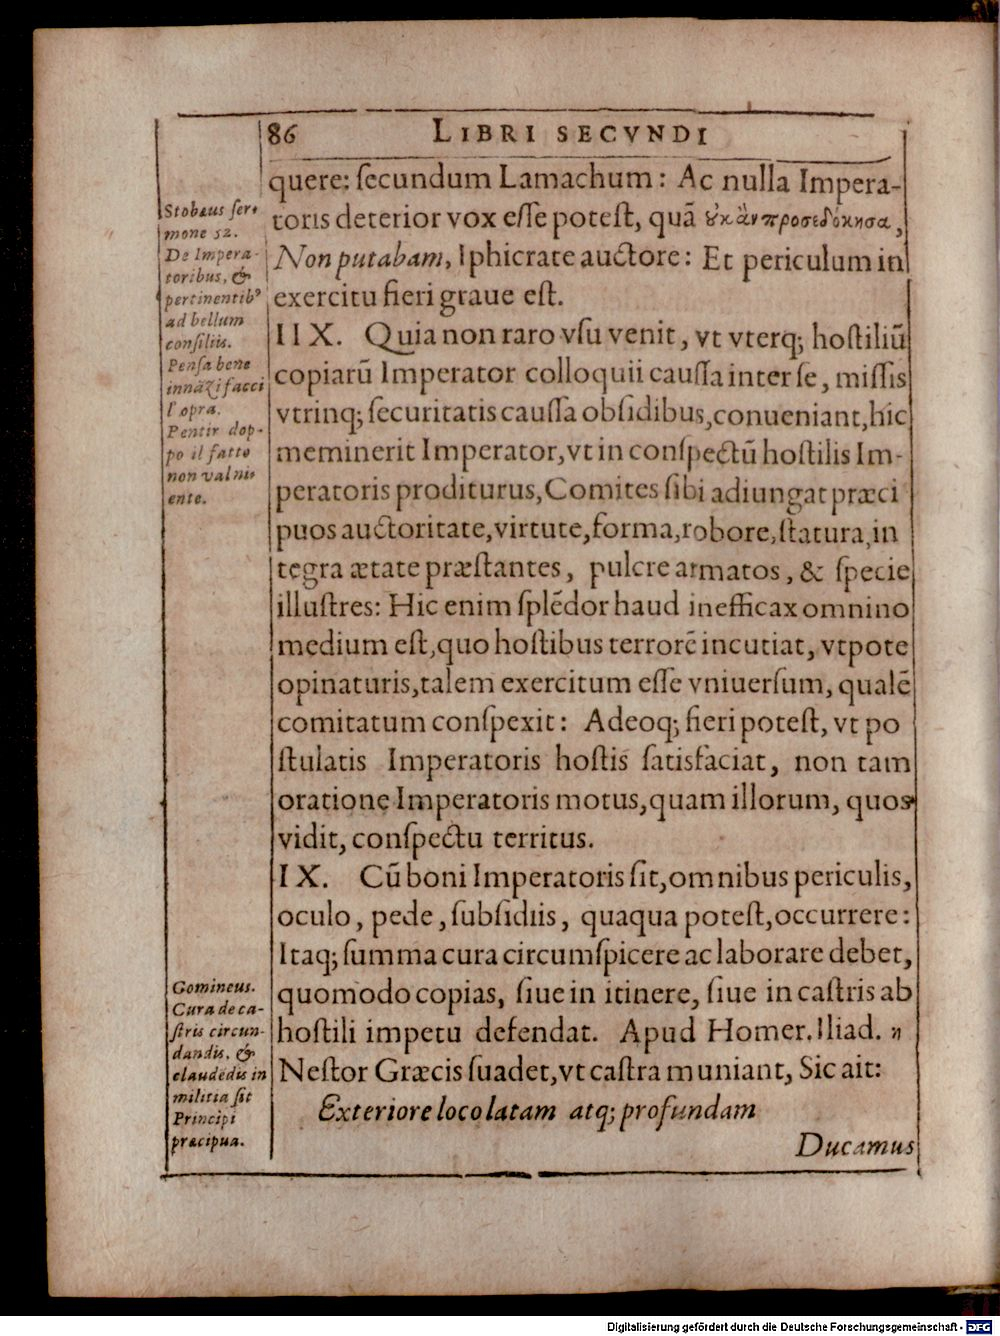 86 LIBRI SECVNDI
quere: ſecundum Lamachum: Ac nulla Impera-
toris deterior vox eſſe poteſt, quã ȣκ ἂν προσεδόκησα,
Non putabam, Iphicrate auctore: Et periculum in
exercitu fieri graue eſt.
IIX. Quia non raro vſu venit, vt vterq; hoſtiliũ
copiarũ Imperator colloquii cauſſa inter ſe, miſſis
vtrinq; ſecuritatis cauſſa obſidibus, conueniant, hîc
meminerit Imperator, vt in conſpectũ hoſtilis Im-
peratoris proditurus, Comites ſibi adiungat præci
puos auctoritate, virtute, forma, robore, ſtatura, in
tegra ætate præſtantes, pulcre armatos, & ſpecie
illuſtres: Hic enim ſplẽdor haud inefficax omnino
medium eſt, quo hoſtibus terrorẽ incutiat, vtpote
opinaturis, talem exercitum eſſe vniuerſum, qualẽ
comitatum conſpexit: Adeoq; fieri poteſt, vt po
ſtulatis Imperatoris hoſtis ſatisfaciat, non tam
oratione Imperatoris motus, quam illorum, quos
vidit, conſpectu territus.
IX. Cũ boni Imperatoris ſit, omnibus periculis,
oculo, pede, ſubſidiis, quaqua poteſt, occurrere:
Itaq; ſumma cura circumſpicere ac laborare debet,
quomodo copias, ſiue in itinere, ſiue in caſtris ab
hoſtili impetu defendat. Apud Homer. Iliad. η
Neſtor Græcis ſuadet, vt caſtra muniant, Sic ait:
Exteriore loco latam atq; profundam
Ducamus
Stobæus ſer-
mone 52.
De Impera-
toribus, &
pertinentibꝰ
ad bellum
conſiliis.
Penſa bene
innãzi facci
l'opra.
Pentir dop-
po il fatto
non val ni-
ente.
Gomineus.
Cura de ca-
ſtris circun-
dandis, &
claudẽdis in
militia ſit
Principi
præcipua.
Digitalisierung gefördert durch die Deutsche Forschungsgemeinschaft - DFG